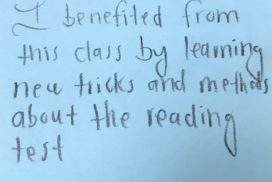 I benefited from
this class by learning
new tricks and methods
about the reading
test